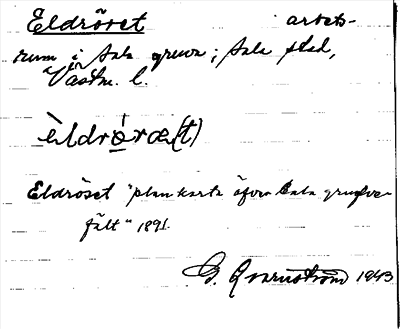 Eldröret arbets-
rum i Sala gruva; Sala stad,
Västm. l.
èldrö́ræ(t)
Eldröset "plan karta öfver Sala grufve-
fält" 1891.
G. Qvarnström 1943